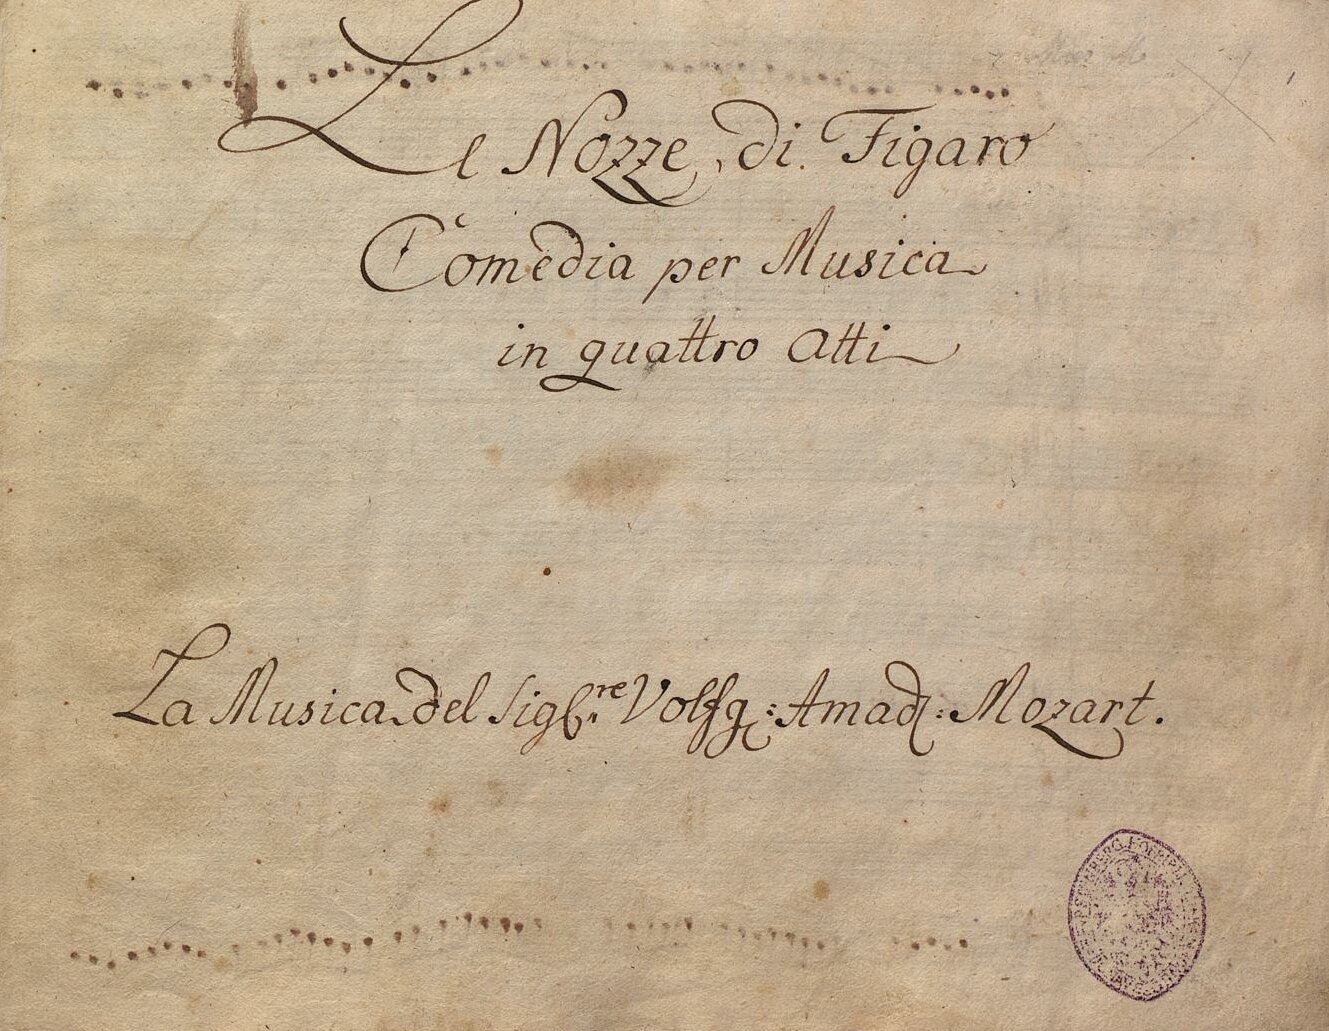 Le Nozze di Figaro
Comedia per Musica
in quattro Atti
La Musica del Sig.re Volfg: Amad: Mozart.